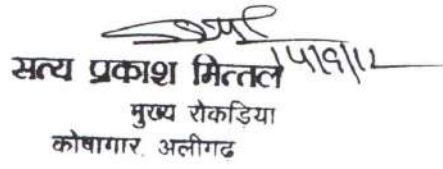 सत्य प्रकाश मित्तल
मुख्य रोकड़िया
कोषागार, अलीगढ